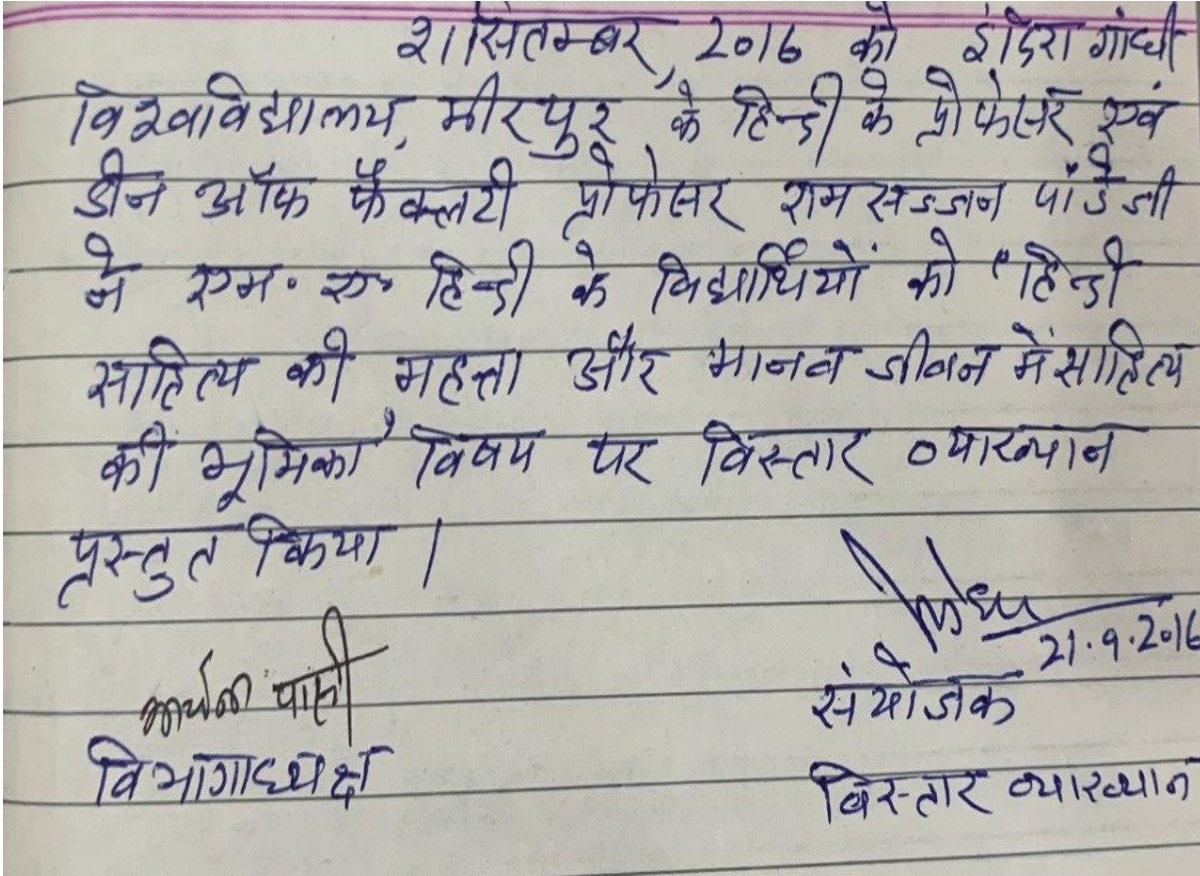 21 सितम्बर, 2016 को इंदिरा गांधी
विश्वविद्यालय, मीरपुर के हिन्दी के प्रोफेसर एवं
डीन ऑफ फैक्लटी प्रोफेसर रामसज्जन पांडे जी
ने एम. ए. हिन्दी के विद्यार्थियों को "हिन्दी
साहित्य की महत्ता और मानव जीवन में साहित्य
की भूमिका" विषय पर विस्तार व्याख्यान
प्रस्तुत किया।
21.9.2016
संयोजक
विभागाध्यक्ष
विस्तार व्याख्यान